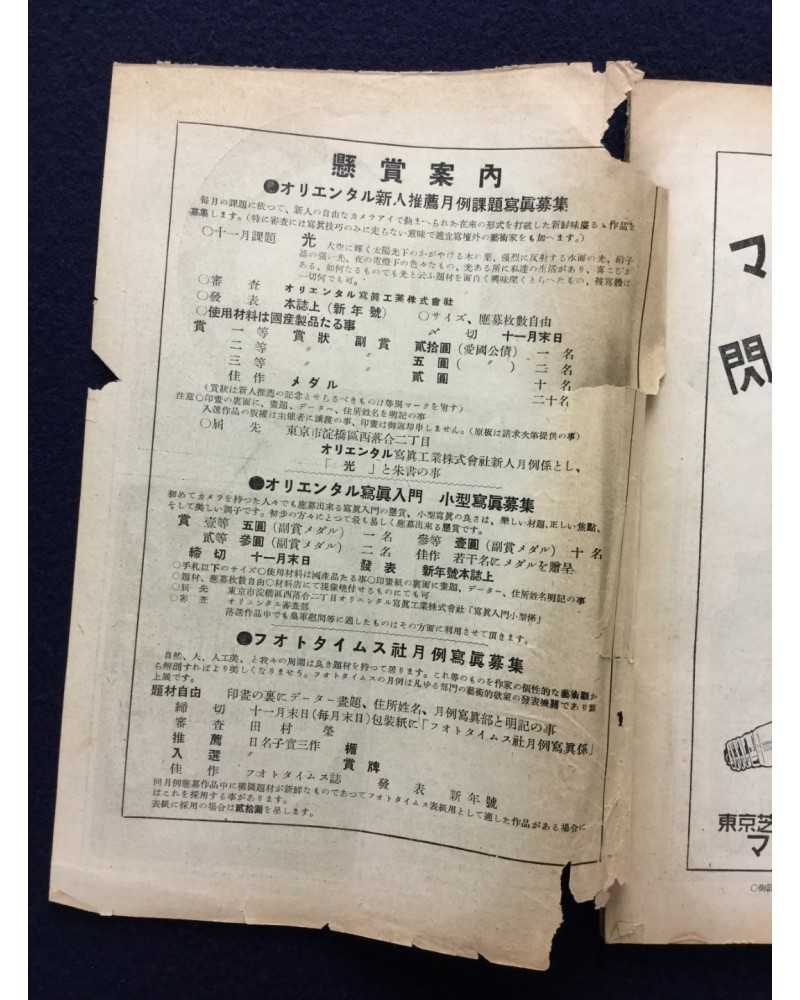 懸賞案内
●オリエンタル新人推薦月例課題寫眞募集
毎月の課題に依つて、新人の自由なカメラアイで動まへられた在來の形式を打破した新鮮味盛る作品を
募集します。(特に審査には寫眞技巧のみに走らない意味で適宜寫壇外の藝術家をも加へます。)
〇十一月課題 光
大空に輝く太陽光下のかがやける木の葉、强烈に反射する水面の光、硝子
晶の强い光、夜の電燈下の色々なもの、光ある所に私達の生活があり、喜こびが
ある、如何なるものでも光と云ふ題材を面白く興味深くとらへたもの、種寫機は
一切何でも可。
〇審査 オリエンタル寫眞工業株式會社
〇發表 本誌上(新年號) 〇サイズ、應募枚數自由
〇使用材料は國産製品たる事 〆切 十一月末日
賞 一等 賞狀 副賞 貳拾圓(愛國公債) 一名
二等 〃 〃 五圓( 〃 ) 二名
三等 〃 〃 貳圓 十名
佳作 メダル 二十名
(賞狀は新人推薦の記念とせらるべきものは等別マークを寄す)
注意〇印畫の裏面に、畫題、データー、住所姓名を明記の事
入選作品の版權は主催者に讓渡の事、印畫は御返却申しません。(原板は請求次第提供の事)
〇届先 東京市淀橋區西落合二丁目
オリエンタル寫眞工業株式會社新人月例係とし、
「光」と朱書の事
●オリエンタル寫眞入門 小型寫眞募集
初めてカメラを持つた人々でも應募出來る寫眞入門の懸賞、小型寫眞の良さは、樂しい材題、正しい焦點、
そして美しい調子です。初歩の方々にとつて最も易しく應募出來る懸賞です。
賞 壹等 五圓(副賞メダル) 一名 參等 壹圓(副賞メダル) 十名
貳等 參圓(副賞メダル) 二名 佳作 若干名にメダルを贈呈
締切 十一月末日 發表 新年號本誌上
〇手札以下のサイズ〇使用材料は國産品たる事〇印畫紙の裏面に畫題、データー、住所姓名明記の事
〇題材、應募枚數自由〇材料店にて現像燒付せるものにても可
〇届先 東京市淀橋區西落合二丁目オリエンタル寫眞工業株式會社「寫眞入門小型係」
〇審査 オリエンタル審査部
落選作品中でも皇軍慰問等に適したものはその方面に利用させて頂きます。
●フオトタイムス社月例寫眞募集
自然、人、人工美、と我々の周圍は良き題材を持つて居ります。これ等のものを作家の個性的な藝術觀か
ら解剖すればより美しくなりませう。フオトタイムスの月例は凡ゆる部門の藝術的欲望の發表機關であり
上展です。
題材自由 印畫の裏にデーター畫題、住所姓名、月例寫眞部と明記の事
締切 十一月末日(每月末日)包裝紙に「フオトタイムス社月例寫眞係」
審査 田村榮
推薦 日名子實三作 楯
入選 〃 賞牌
佳作 フオトタイムス誌 發表 新年號
回月例應募作品中に構圖題材が新鮮なものであつてフオトタイムス表紙用として適した作品がある場合に
ばこれを採用する事があります。
表紙に採用の場合は貳拾圓を呈します。
マ
閃
東京芝
マ